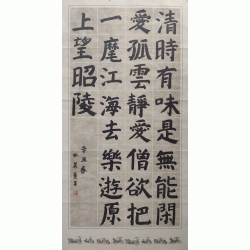 清時有味是無能閒
愛孤雲靜愛僧欲把
一麾江海去樂遊原
上望昭陵
辛丑春